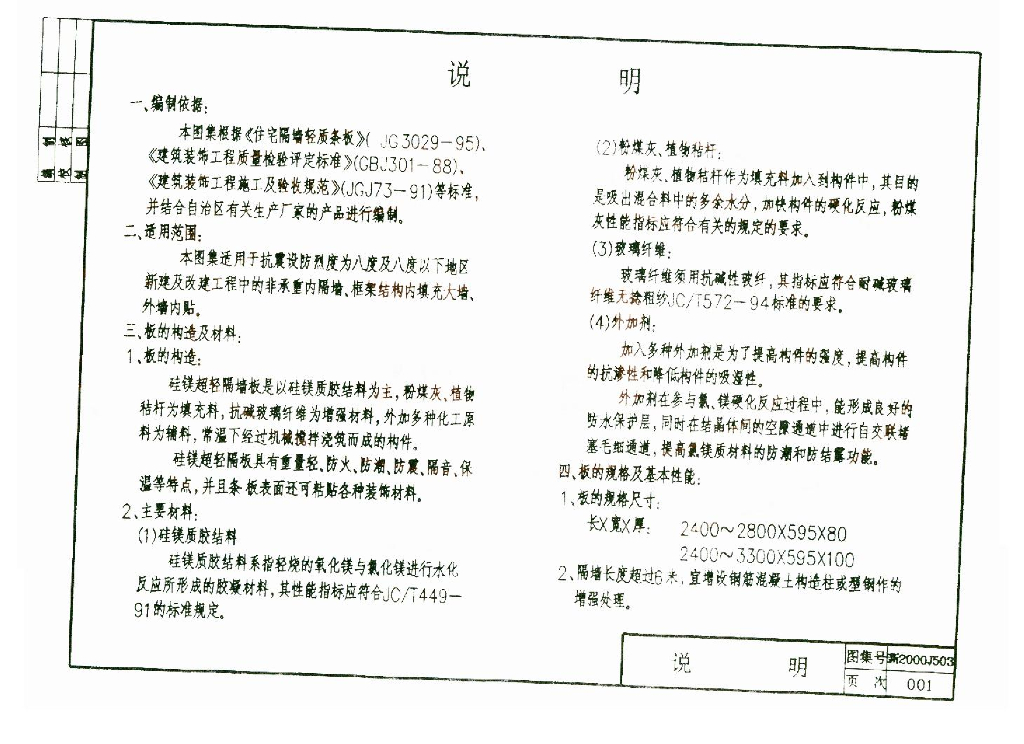 说 明
一、编制依据:
本图集根据《住宅隔墙轻质条板》( JG3029-95)、
《建筑装饰工程质量检验评定标准》(GBJ301-88)、
《建筑装饰工程施工及验收规范》(JGJ73-91)等标准,
并结合自治区有关生产厂家的产品进行编制。
二、适用范围:
本图集适用于抗震设防烈度为八度及八度以下地区
新建及改建工程中的非承重内隔墙、框架结构内填充大墙、
外墙内贴。
三、板的构造及材料:
1、板的构造:
硅镁超轻隔墙板是以硅镁质胶结料为主,粉煤灰、植物
秸秆为填充料,抗碱玻璃纤维为增强材料,外加多种化工原
料为辅料,常温下经过机械搅拌浇筑而成的构件。
硅镁超轻隔板具有重量轻、防火、防潮、防震、隔音、保
温等特点,并且条板表面还可粘贴各种装饰材料。
2、主要材料:
(1)硅镁质胶结料
硅镁质胶结料系指轻烧的氧化镁与氯化镁进行水化
反应所形成的胶凝材料,其性能指标应符合JC/T449-
91的标准规定。
(2)粉煤灰、植物秸秆:
粉煤灰、植物秸秆作为填充料加入到构件中,其目的
是吸出混合料中的多余水分,加快构件的硬化反应,粉煤
灰性能指标应符合有关的规定的要求。
(3)玻璃纤维:
玻璃纤维须用抗碱性玻纤,其指标应符合耐碱玻璃
纤维无捻粗纱JC/T572-94标准的要求。
(4)外加剂:
加入多种外加剂是为了提高构件的强度,提高构件
的抗渗性和降低构件的吸湿性。
外加剂在参与氯、镁硬化反应过程中,能形成良好的
防水保护层,同时在结晶体间的空隙通道中进行自交联堵
塞毛细通道,提高氯镁质材料的防潮和防结露功能。
四、板的规格及基本性能:
1、板的规格尺寸:
长X宽X厚: 2400~2800X595X80
2400~3300X595X100
2、隔墙长度超过6米,宜增设钢筋混凝土构造柱或型钢作的
增强处理。
说 明
图集号 新2000J503
页 次 001